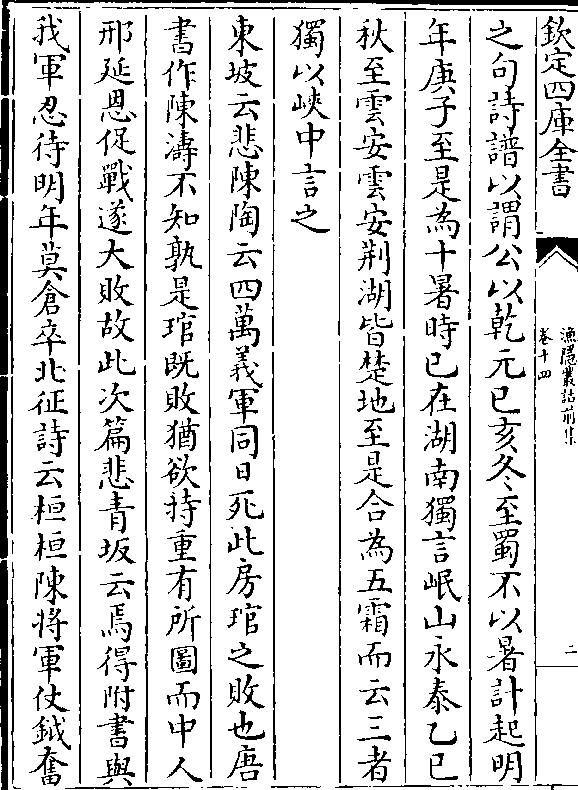 欽定四庫全書
漁隱叢話前集
卷十四
二
之句詩譜以謂公以乾元已亥冬至蜀不以暑計起明
年庚子至是為十暑時已在湖南獨言岷山永泰乙巳
秋至雲安雲安荆湖皆楚地至是合為五霜而云三者
獨以峽中言之
東坡云悲陳陶云四萬義軍同日死此房琯之敗也唐
書作陳濤不知孰是琯既敗猶欲持重有所圖而中人
邢延恩促戰遂大敗故此次篇悲青坂云焉得附書與
我軍忍待明年莫倉卒北征詩云桓桓陳將軍仗鉞奮